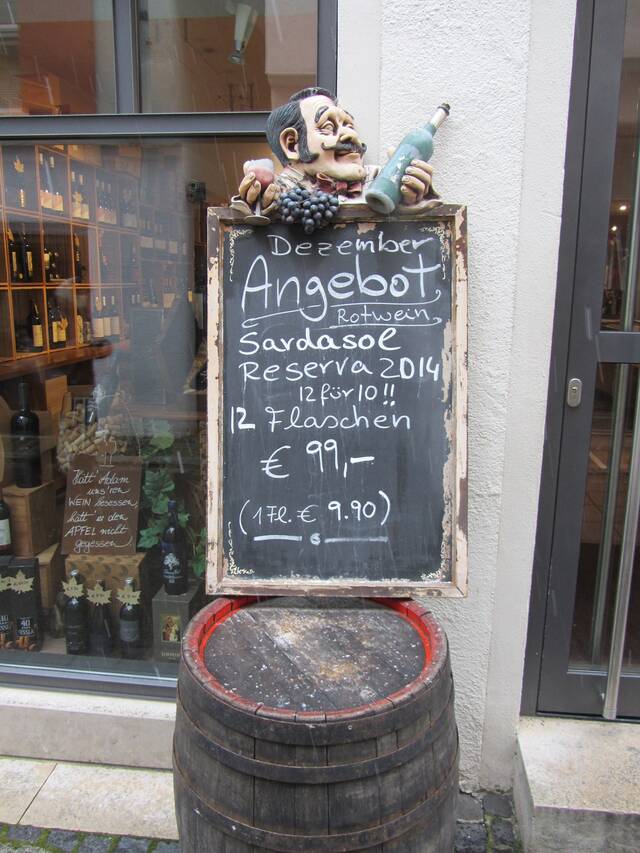 Dezember
Angebot
Rotwein
Sardasol
Reserva 2014
12 für 10!!
12 Flaschen
€ 99,-
(1 Fl. € 9.90)
Hätt' Adam
uns'ren
WEIN besessen,
hätt' er den
APFEL nicht
gegessen.
40